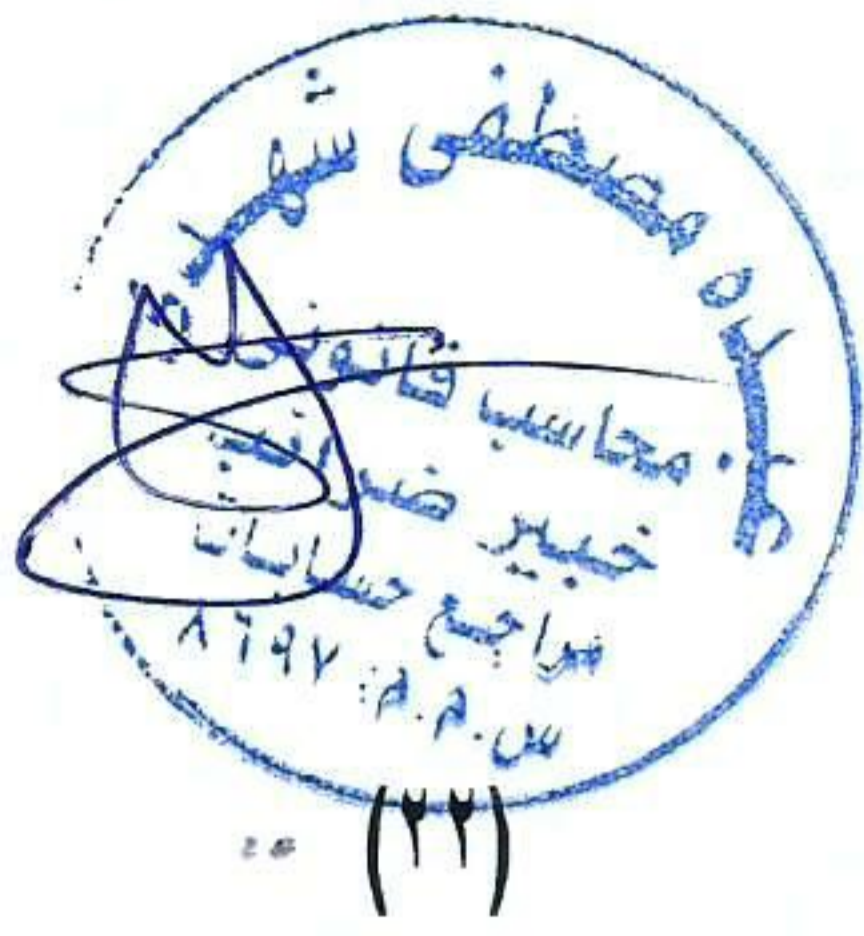 عبده مصطفى
محاسب قانونى
خبير ضرائب
مراجع حسابات
س.م.م: ٨٦٩٧
(٢٢)